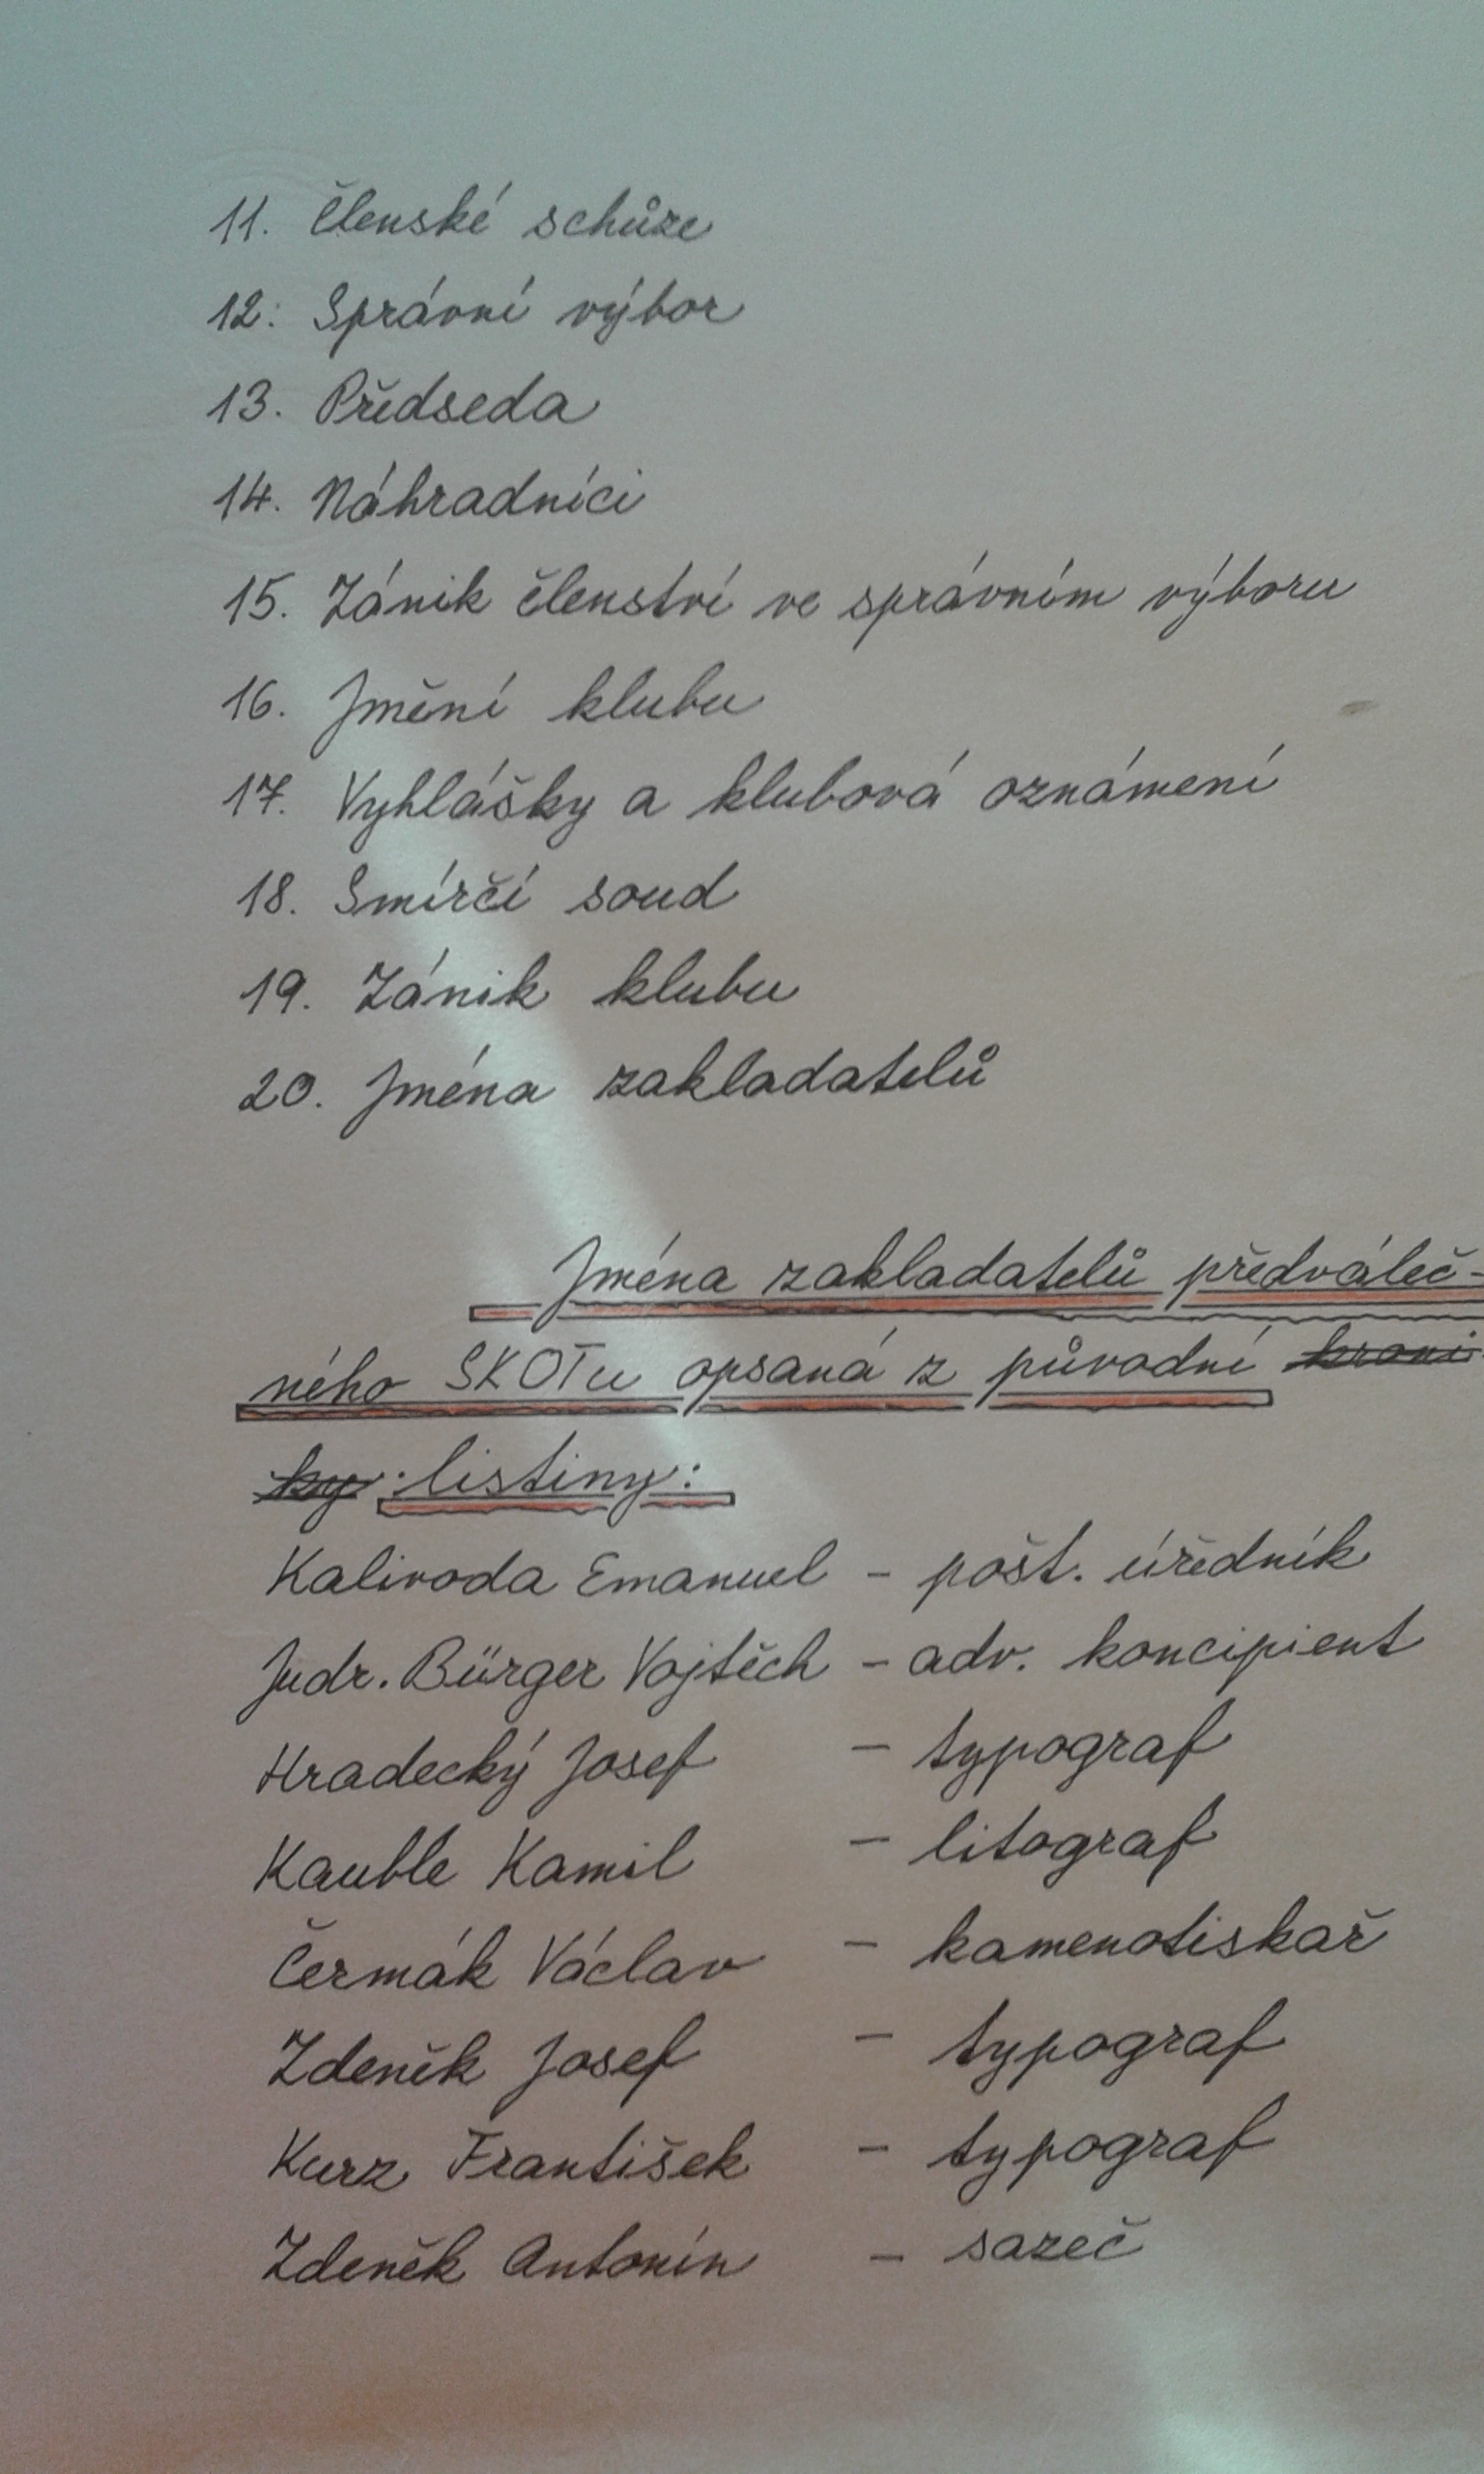 11. Členské schůze
12. Správní výbor
13. Předseda
14. Náhradníci
15. Zánik členství ve správním výboru
16. Jmění klubu
17. Vyhlášky a klubová oznámení
18. Smírčí soud
19. Zánik klubu
20. Jména zakladatelů
Jména zakladatelů předváleč-
ného SKOTu opsaná z původní kroni-
ky listiny:
Kalivoda Emanuel - pošt. úředník
Judr. Bürger Vojtěch - adv. koncipient
Hradecký Josef - typograf
Kauble Kamil - litograf
Čermák Václav - kamenotiskař
Zdeněk Josef - typograf
Kurz František - typograf
Zdeněk Antonín - sazeč